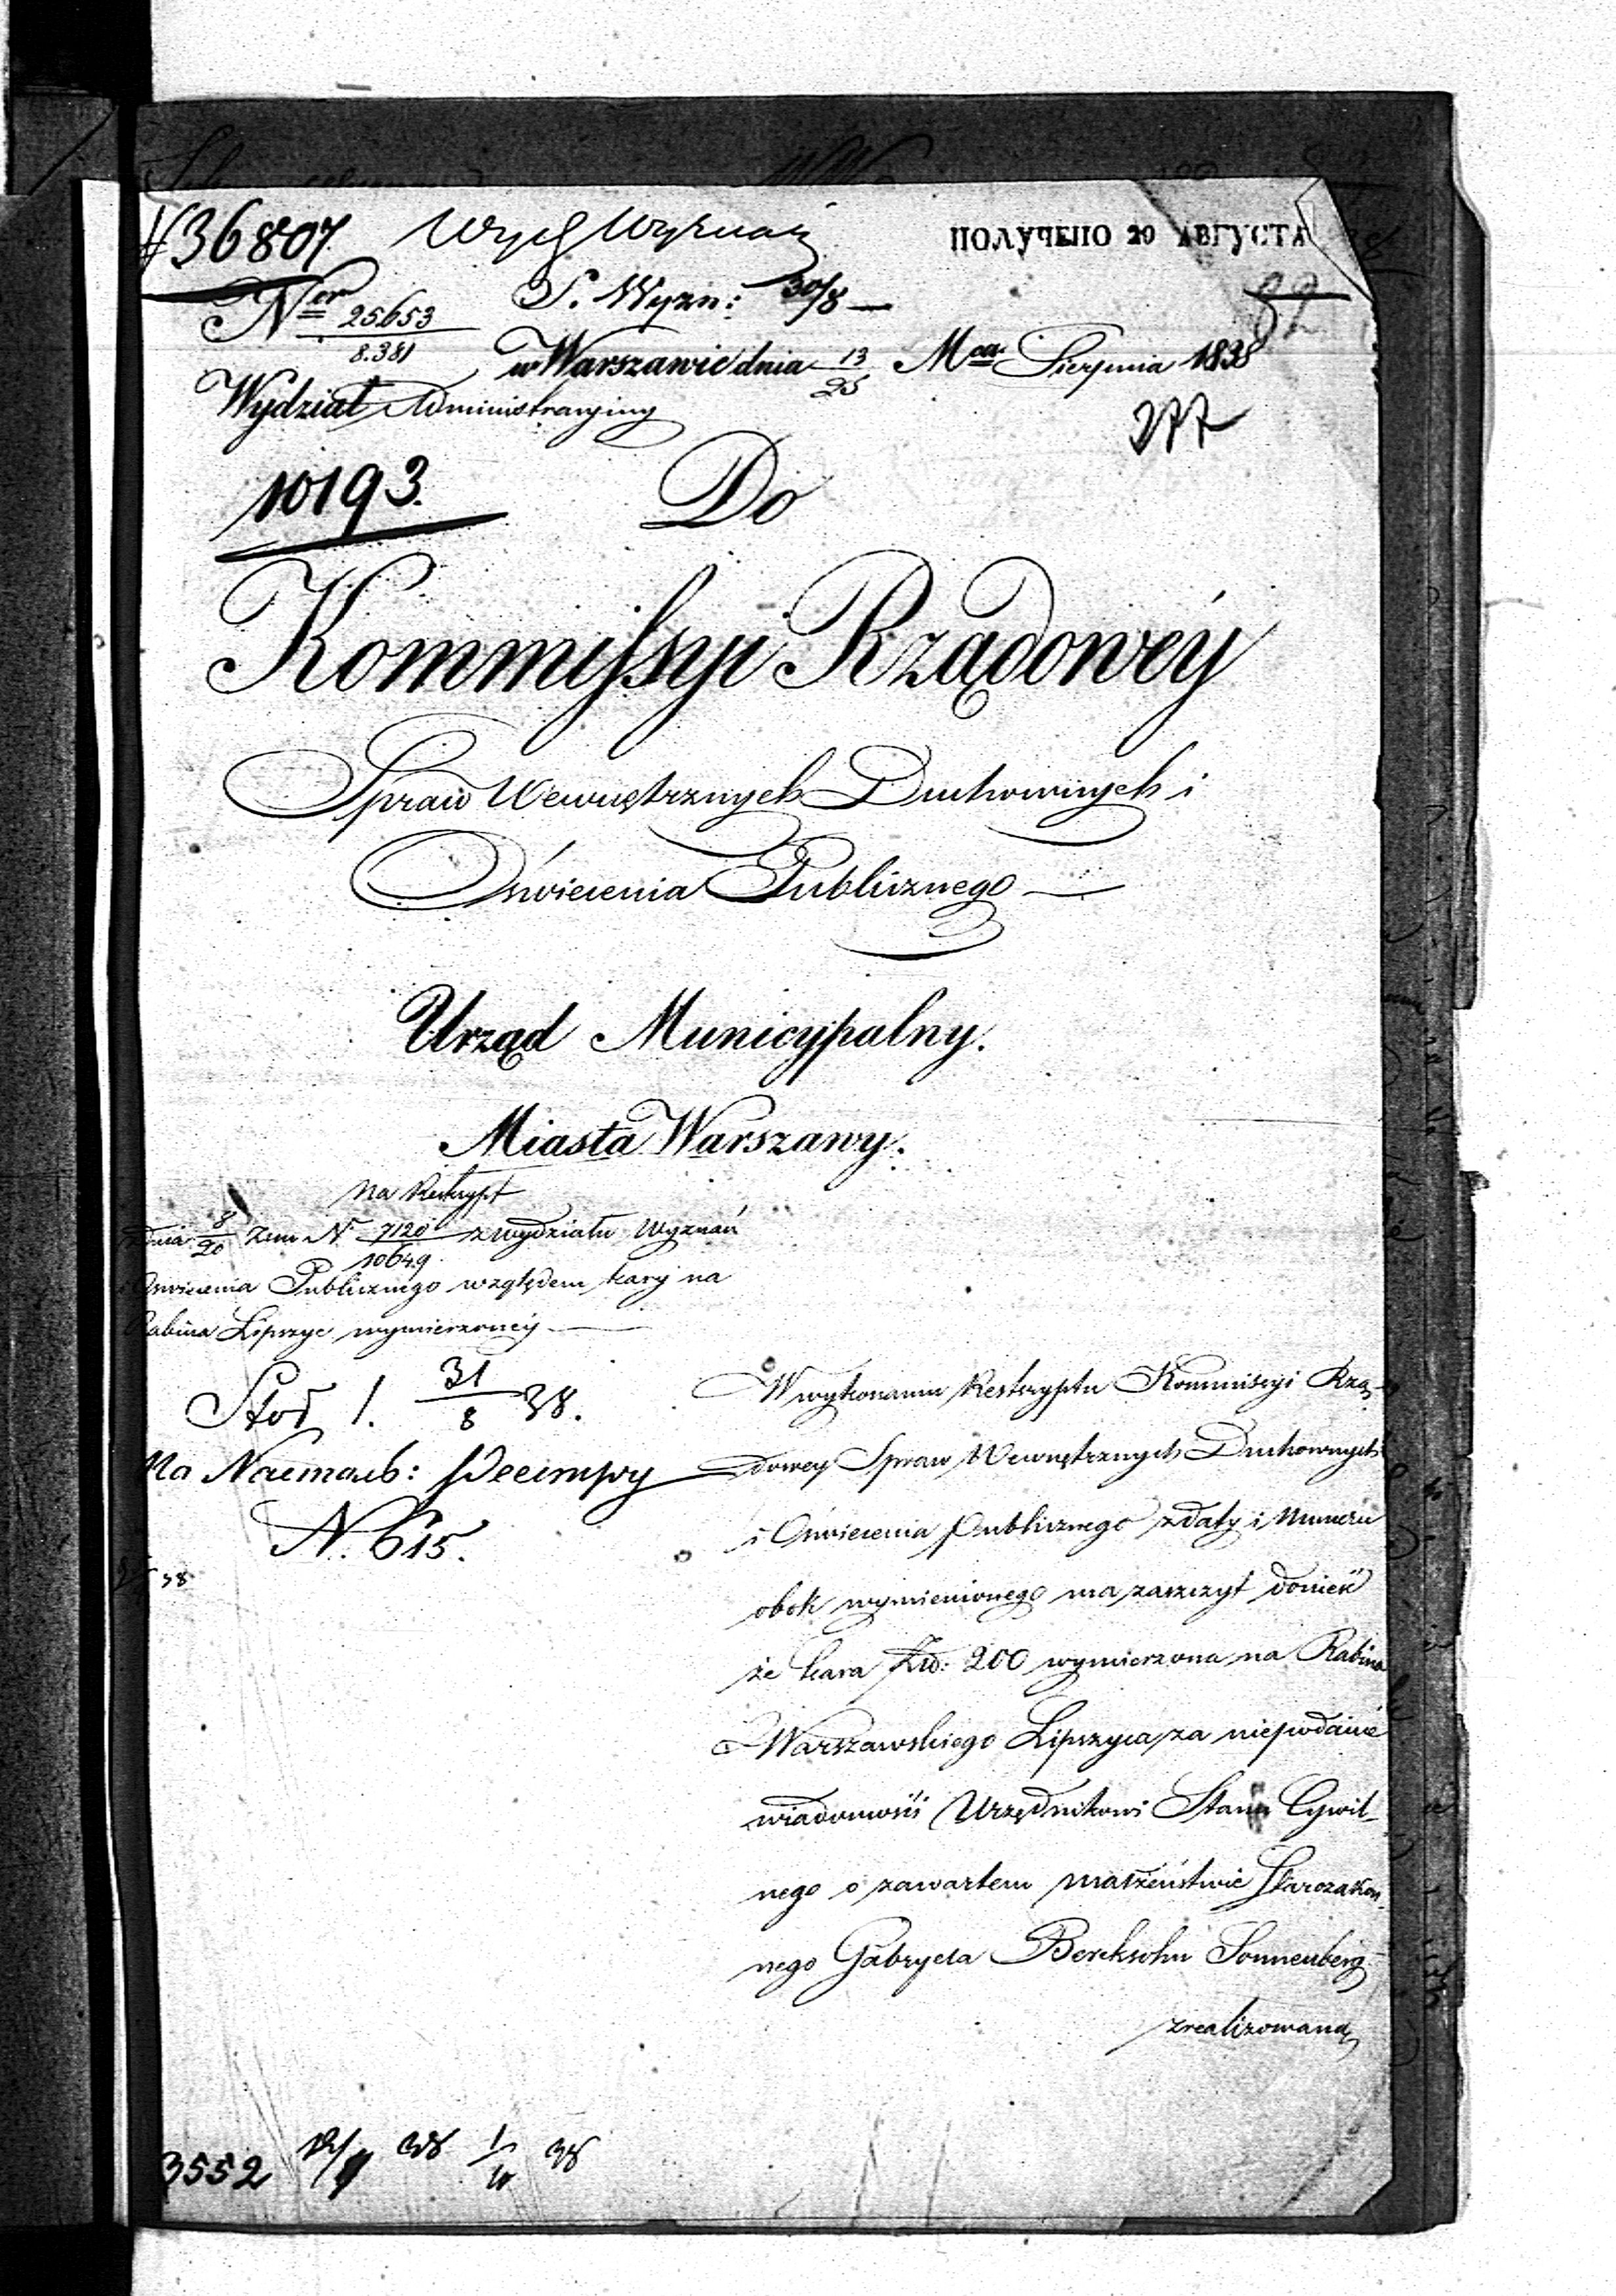 36807
Wyd Wyznań
ПОЛУЧЕНО 20 АВГУСТА
Ner 25653
8.381
S. Wyzn: 30/8
w Warszawie dnia 13/25 Mca Sierpnia 1838
277
Wydział Administracyiny
10193.
Do
Kommissyi Rządowéy
Spraw Wewnętrznych Duchownych i
Oświecenia Publicznego
Urząd Municypalny.
Miasta Warszawy.
Na Reskrypt
dnia 8/20 Zm N. 7120/10649 z wydziału Wyznań
Oświecenia Publicznego względem kary na
Rabina Lipszyc wymierzoney
31/8 38.
N. 615.
W wykonaniu Reskryptu Kommissyi Rzą-
dowey Spraw Wewnętrznych Duchownych
i Oświecenia Publicznego z daty i Numeru
obok wymienionego ma zaszczyt donieść
że kara Złd: 200 wymierzona na Rabina
Warszawskiego Lipszyca za niepodanie
wiadomości Urzędnikowi Stanu Cywil-
nego o zawartem małżeństwie Starozakon-
nego Gabryela Bereksohn Sonnenberg
zrealizowaną
3552 38 1/10 38